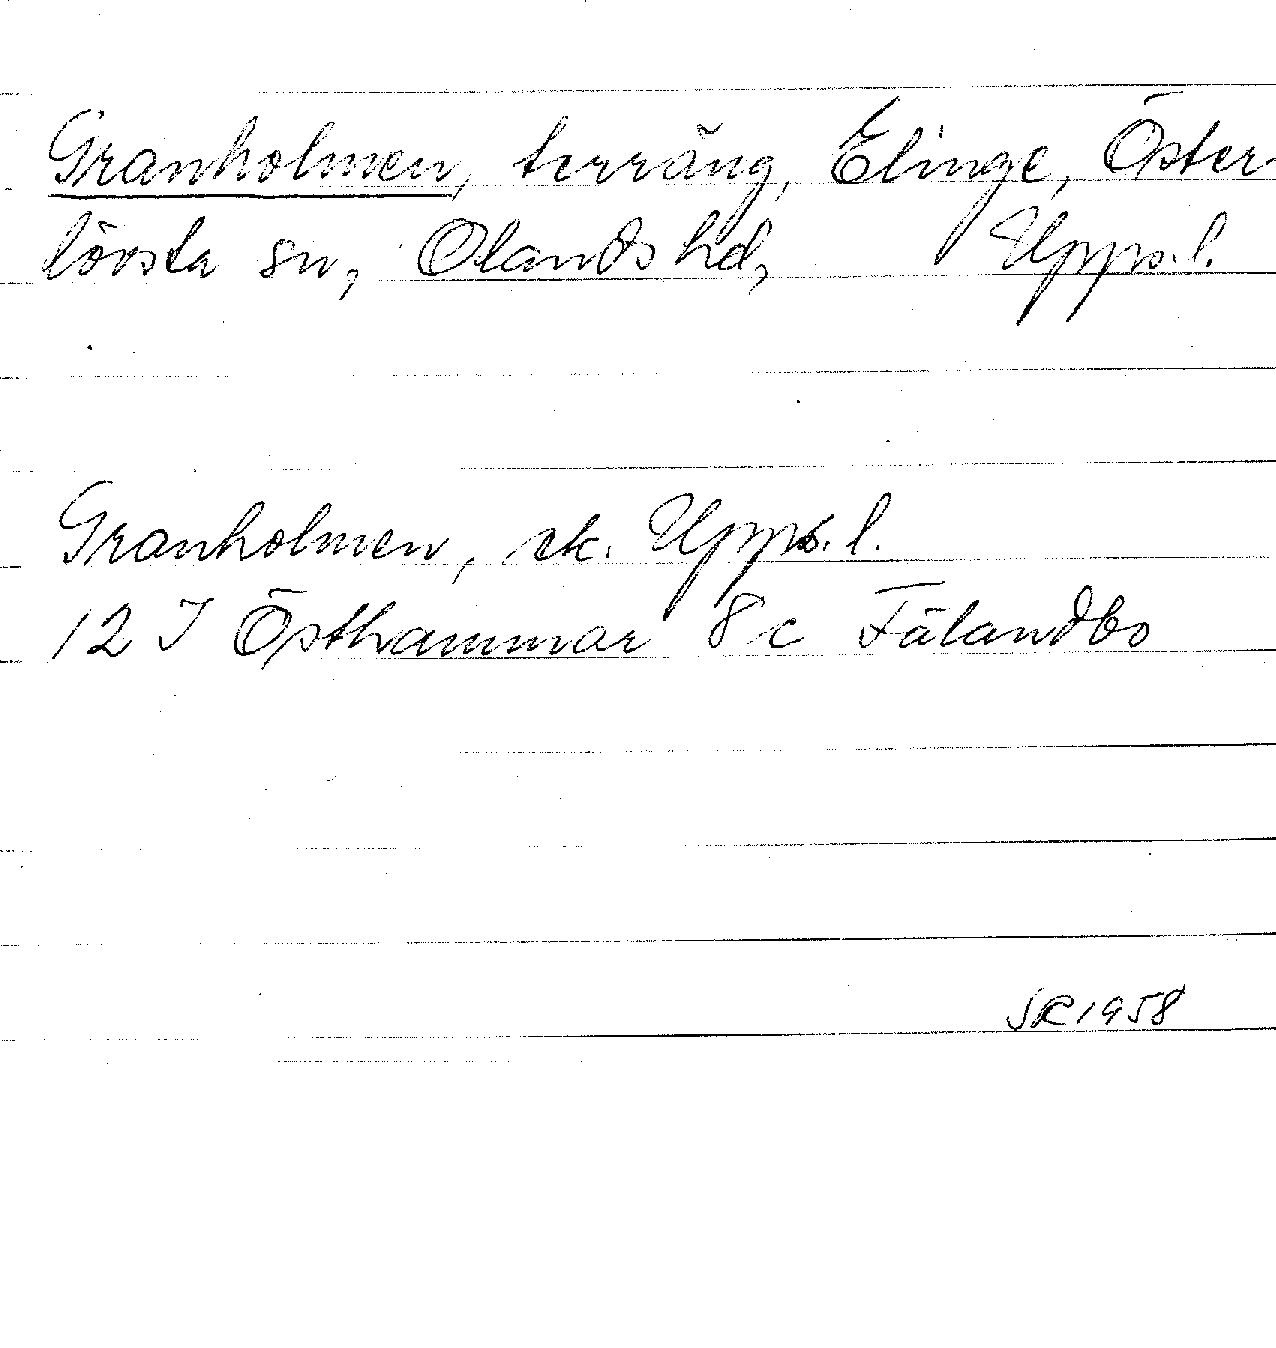 Granholmen, terräng, Elinge, Öster-
lövsta sn, Olands hd, Upps.l.
Granholmen, ek. Upps.l.
12 I Östhammar 8 c Fälandbo
SR 1958